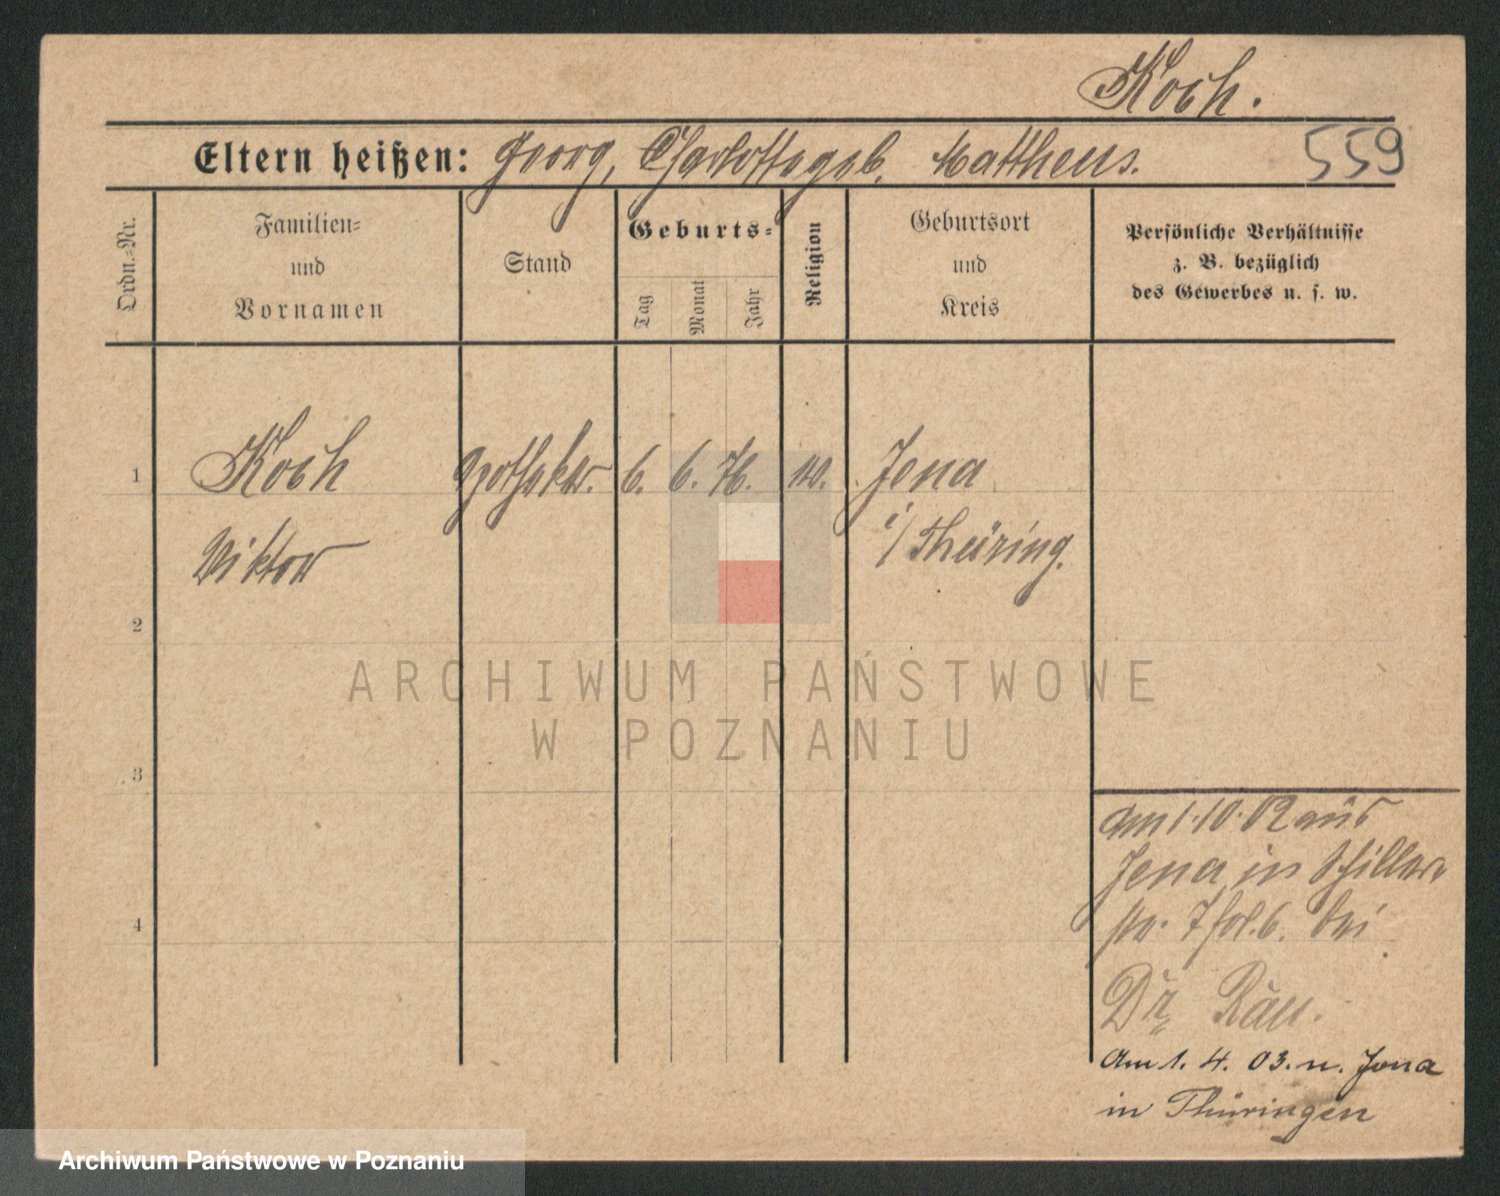 Koch.
Eltern heißen: Georg, Charlotte geb. Mattheus.
559
Ordn.-Nr.
Familien-
und
Vornamen
Stand
Geburts-
Tag
Monat
Jahr
Religion
Geburtsort
und
Kreis
Persönliche Verhältnisse
z. B. bezüglich
des Gewerbes u. s. w.
1
Koch Apotheker. 6. 6. 76. Jena
Viktor i/Thüring.
2
3
4
Am 1.10.02 aus
Jena in Schiller
str. 7 bei
Dr. Rau.
Am 1. 4. 03. n. Jena
in Thüringen
ARCHIWUM PAŃSTWOWE
W POZNANIU
Archiwum Państwowe w Poznaniu